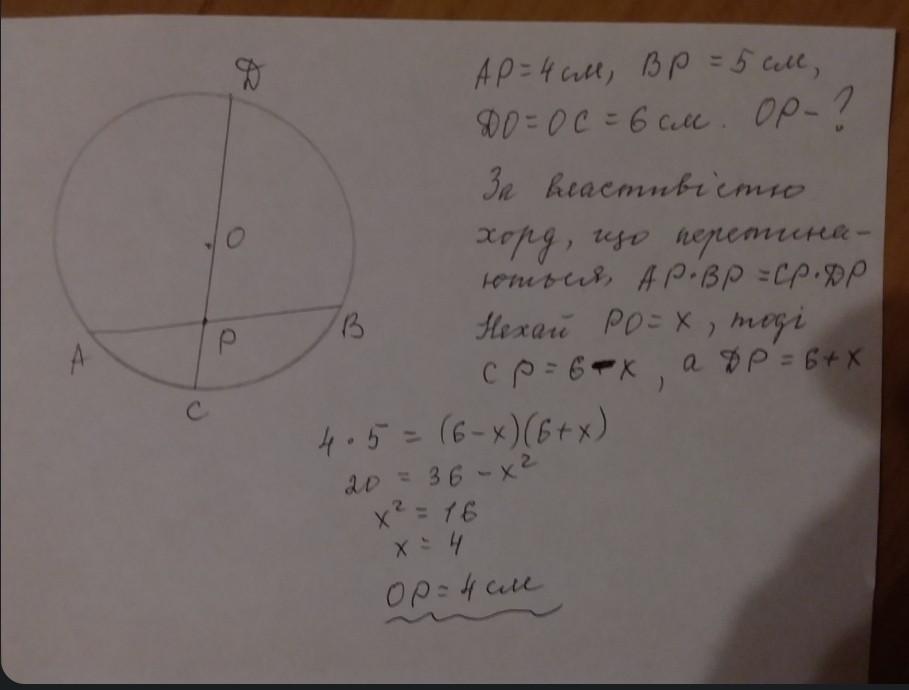 D
O
P
A
B
C
AP=4см, BP=5см,
DO=OC=6см. OP-?
За властивістю
хорд, що перетина-
ються, AP·BP=CP·DP
Нехай PO=x, тоді
CP=6-x, а DP=6+x
4·5=(6-x)(6+x)
20=36-x²
x²=16
x=4
OP=4см